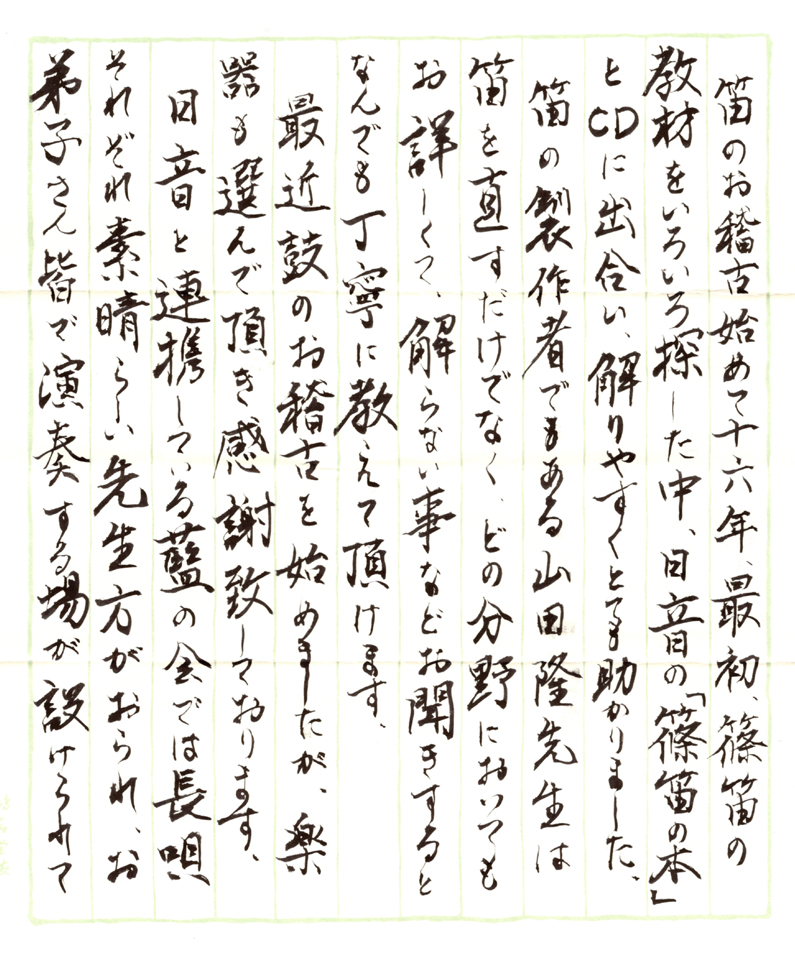 笛のお稽古始めて十六年、最初、篠笛の
教材をいろいろ探した中、日音の「篠笛の本」
とCDに出合い、解りやすくとても助かりました、
笛の製作者でもある山田隆先生は
笛を直すだけでなく、どの分野においても
お詳しくて、解らない事などお聞きすると
なんでも丁寧に教えて頂けます、
最近鼓のお稽古を始めましたが、楽
器も選んで頂き感謝致しております、
日音と連携している藍の会では長唄
それぞれ素晴らしい先生方がおられ、お
弟子さん皆で演奏する場が設けられて